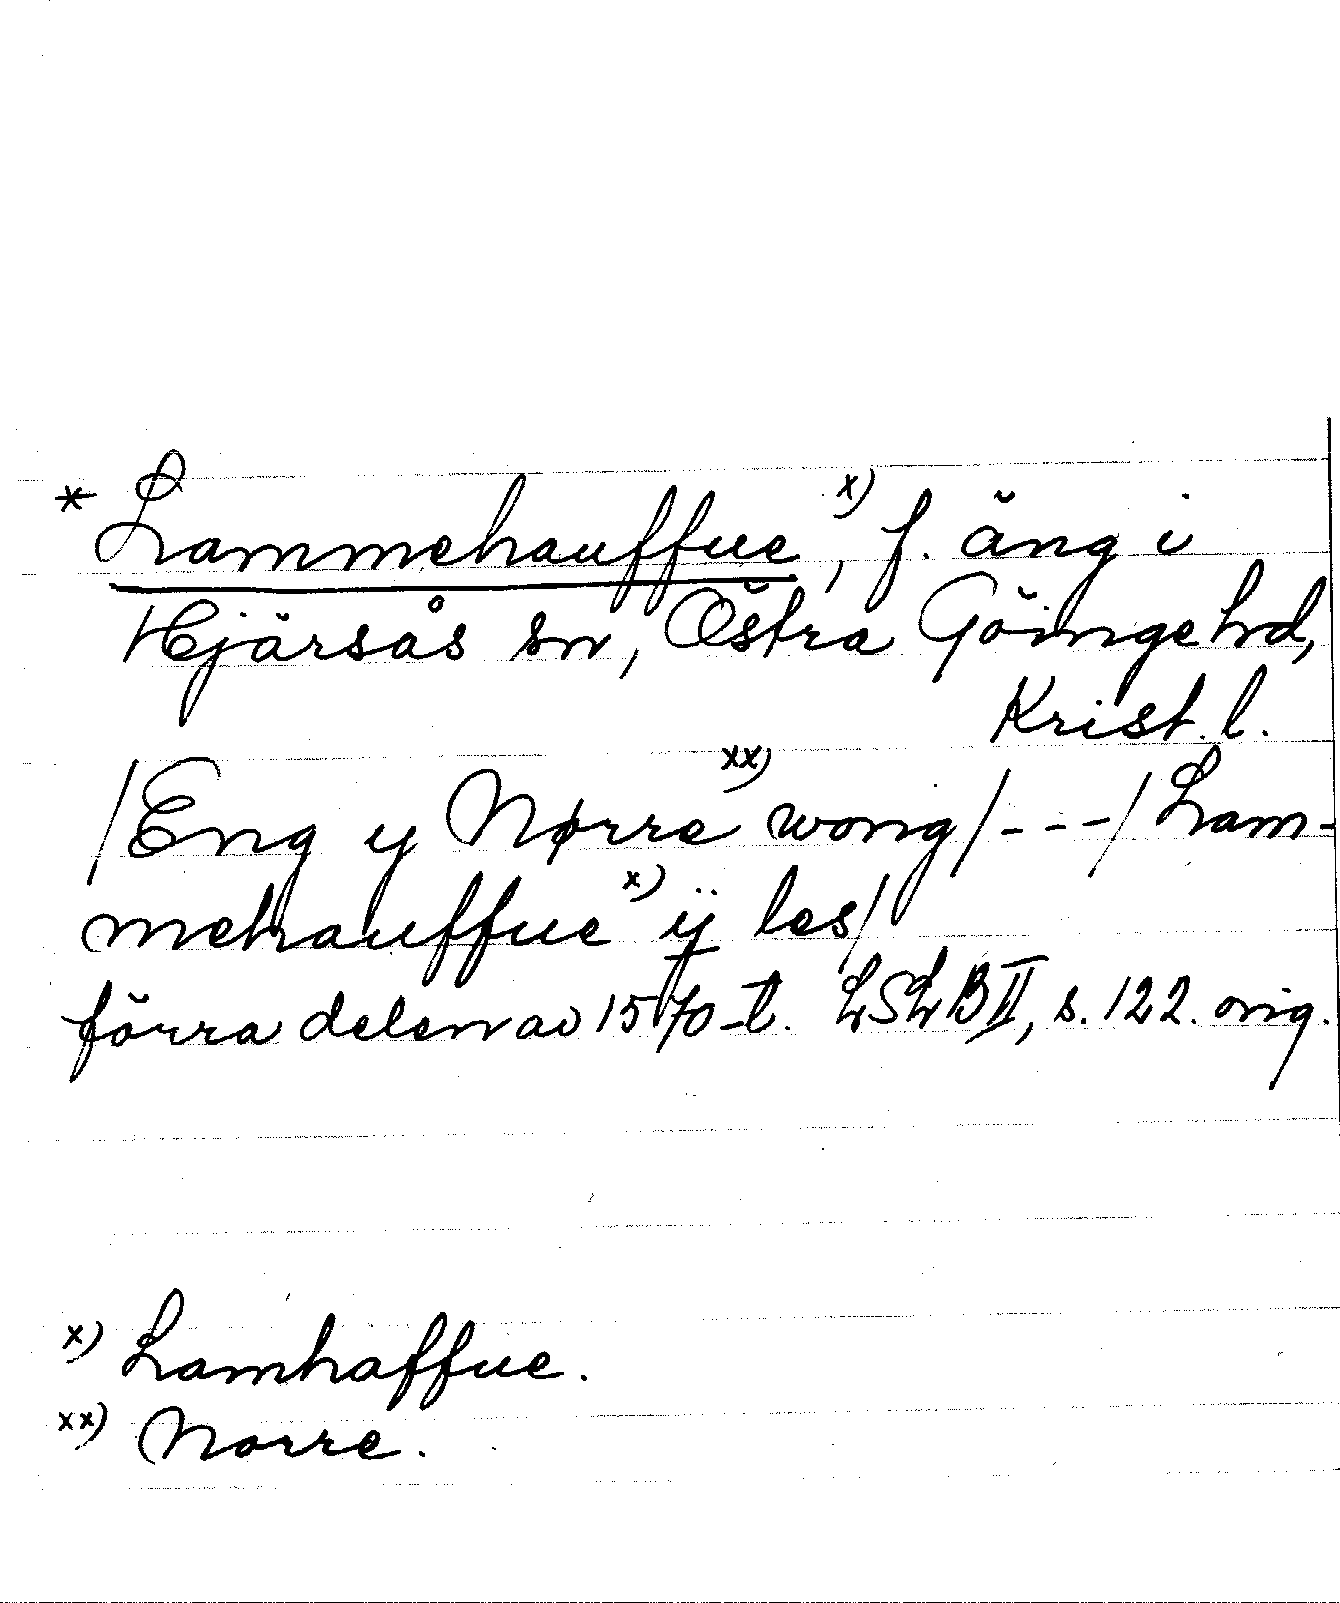 * Lammehauffue x), f. äng i
Hjärsås sn, Östra Göinge hd,
Krist. l.
/Eng y Nørre xx) wong/---/Lam-
mehauffue x) ÿ les/
förra delen av 1570-t. LSLB II, s. 122. orig.
x) Lamhaffue.
xx) Norre.